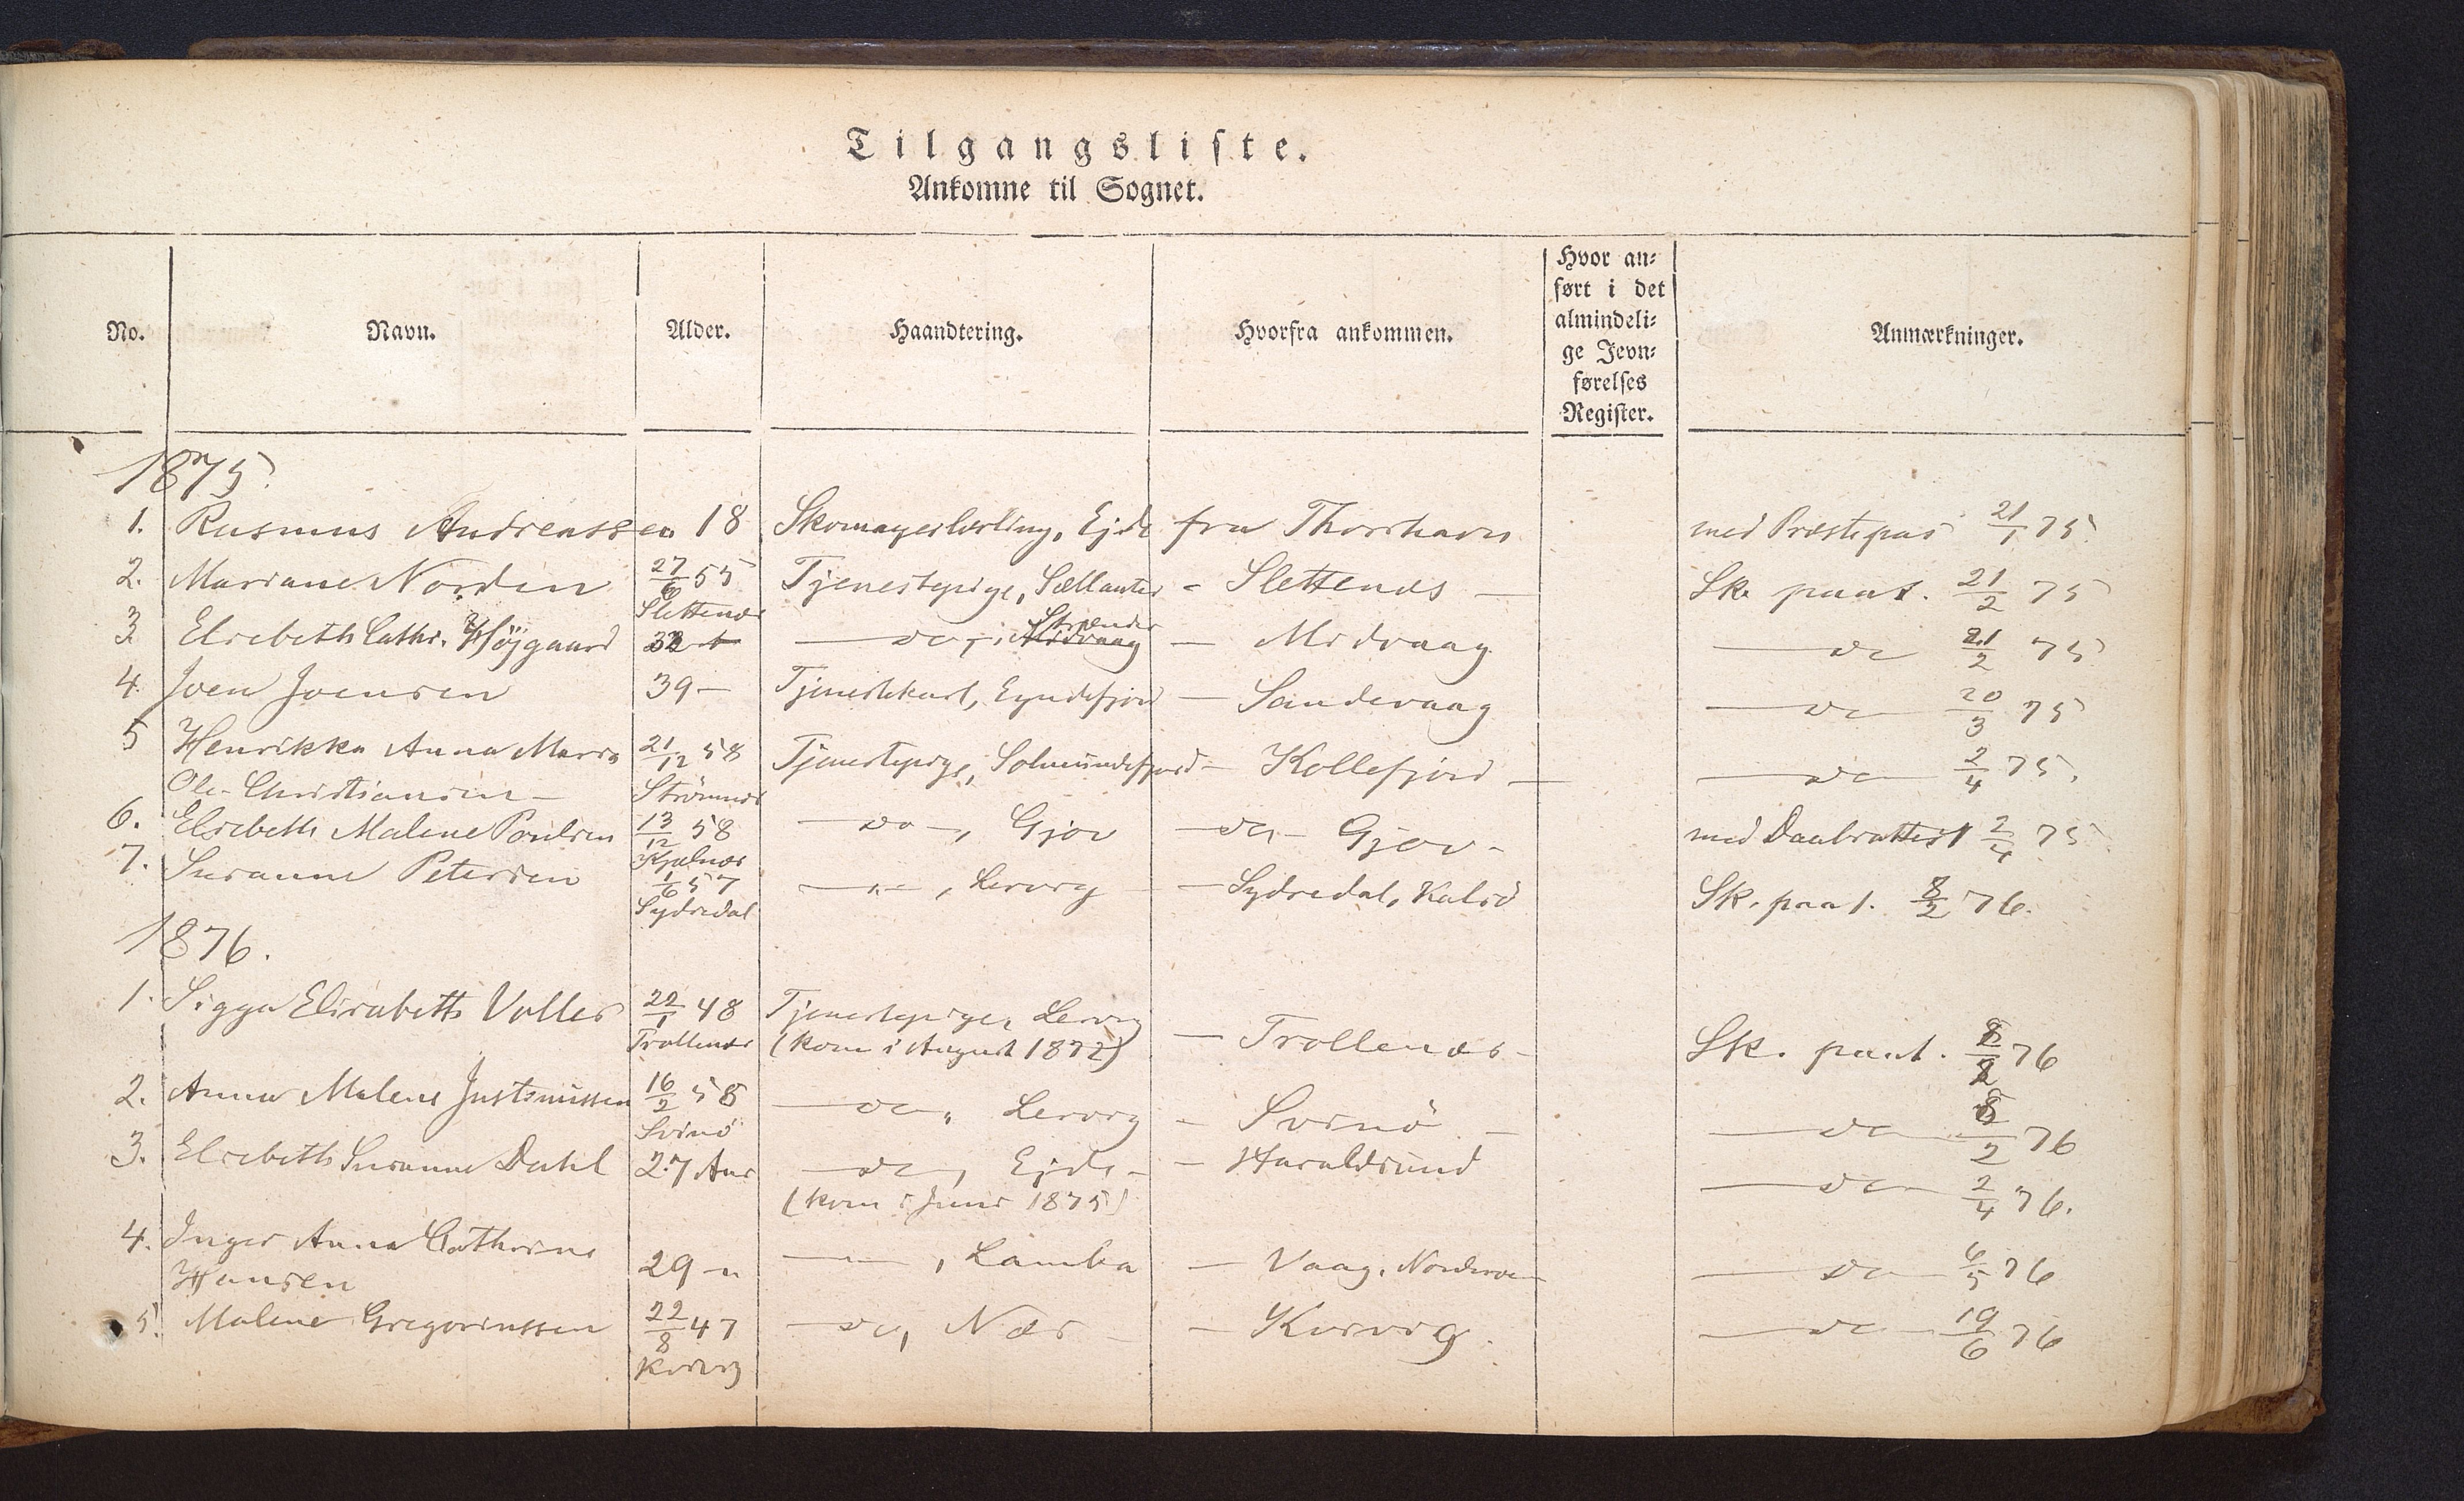 Tilgangsliste.
Ankomne til Sognet.
No. Navn. Alder. Haandtering. Hvorfra ankommen. Hvor an= ført i det almindeli= ge Jevn= førelses Register. Anmærkninger.
1875.
1. Rasmus Andreassen 18 Skomagerlærling, Ejde fra Thorshavn med Præstepas 21/1 75
2. Mariane Norden 27/6 55 Tjenestepige, Sellanter - Slettenæs — Sk. paat. 21/2 75
Slettenæs
3. Elsebeth Cathr. Højgaard 32 — do, Strænder — Midvaag — do 21/2 75
4. Joen Joensen 39 — Tjenestekarl, Eyndefjord — Sandevaag — do 20/3 75
5 Henrikka Anna Maria 21/12 58 Tjenestepige, Solmundefjord — Kollefjord — do 2/4 75.
Ole-Christiansen — Strømnæs
6. Elsebeth Malene Poulsen 13/12 58 — do —, Gjov — do — Gjov - med Daabsattest 2/4 75
Kjælnæs
7. Susanne Petersen 1/6 57 — " —, Lervig — Sydredal, Kalsö Sk. paat. 8/2 76.
Sydredal
1876.
1. Sigga Elisabeth Volles 22/1 48 Tjenestepige, Lervig — Trollenæs - Sk. paat. 8/2 76
Trollenæs (kom i August 1872)
2. Anna Malene Justinussen 16/2 58 — do, Lervig - Svinö — do 8/2 76
Svinö
3. Elsebeth Susanne Dahl 27 Aar — do, Ejde - — Haraldsund — do 2/4 76.
(kom i Juni 1875)
4. Inger Anna Cathrine
Hansen 29 — " — " —, Lamba — Vaag, Norderøe — do 6/5 76
5. Malene Gregoriussen 22/8 47 — do, Næs — Kvivig. — do — 19/6 76
Kvivig